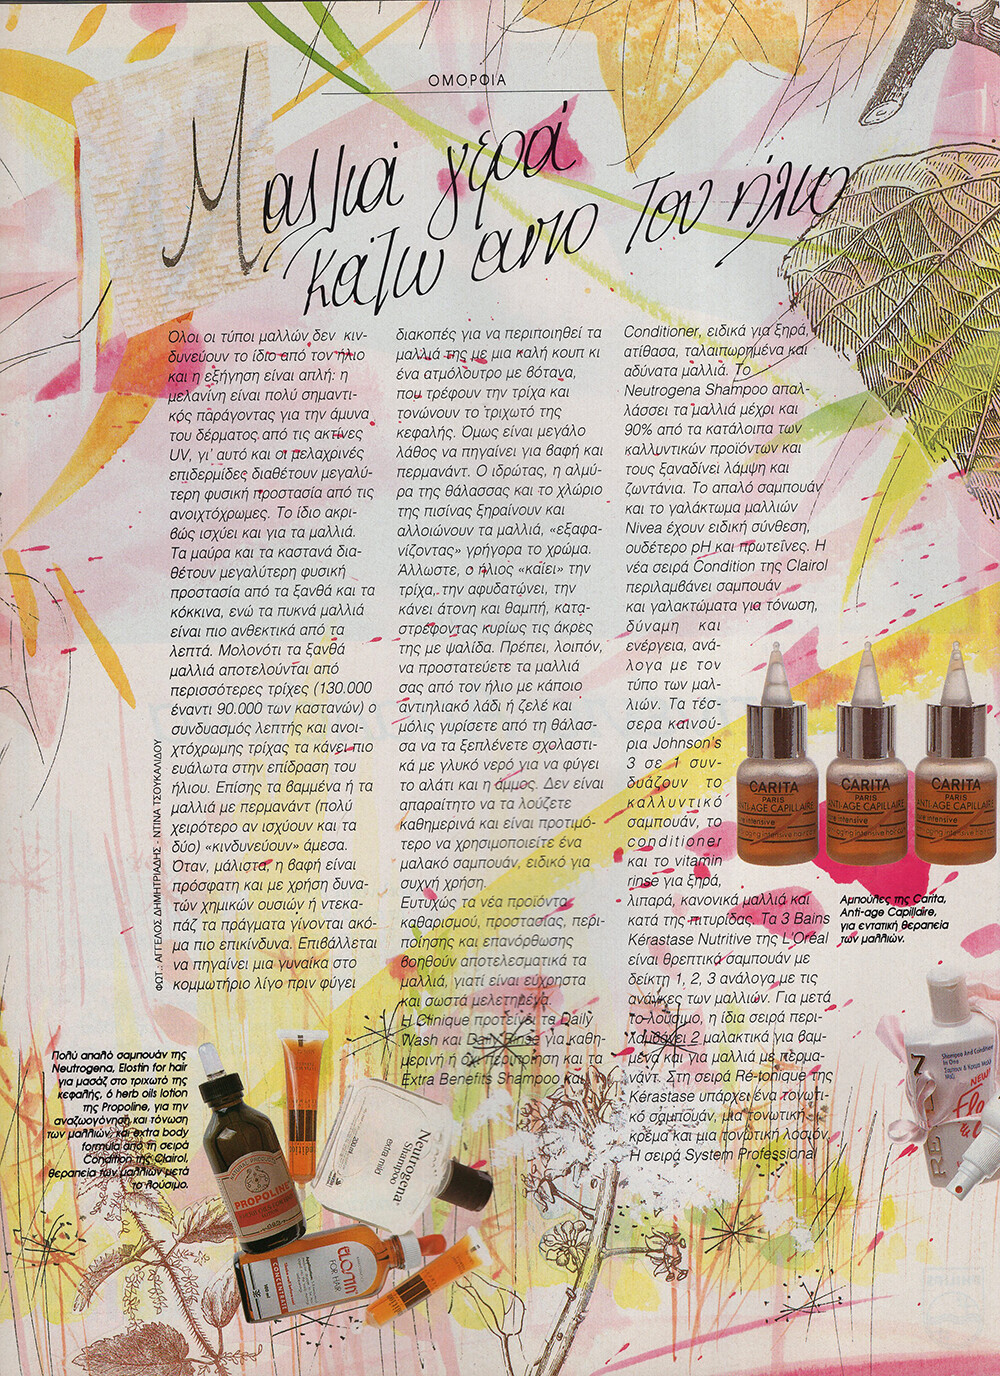 ΟΜΟΡΦΙΑ
Μαλλιά γερά
κάτω απο τον ήλιο
Όλοι οι τύποι μαλλών δεν κιν-
δυνεύουν το ίδιο από τον ήλιο
και η εξήγηση είναι απλή: η
μελανίνη είναι πολύ σημαντι-
κός παράγοντας για την άμυνα
του δέρματος από τις ακτίνες
UV, γι' αυτό και οι μελαχρινές
επιδερμίδες διαθέτουν μεγαλύ-
τερη φυσική προστασία από τις
ανοιχτόχρωμες. Το ίδιο ακρι-
βώς ισχύει και για τα μαλλιά.
Τα μαύρα και τα καστανά δια-
θέτουν μεγαλύτερη φυσική
προστασία από τα ξανθά και τα
κόκκινα, ενώ τα πυκνά μαλλιά
είναι πιο ανθεκτικά από τα
λεπτά. Μολονότι τα ξανθά
μαλλιά αποτελούνται από
περισσότερες τρίχες (130.000
έναντι 90.000 των καστανών) ο
συνδυασμός λεπτής και ανοι-
χτόχρωμης τρίχας τα κάνει πιο
ευάλωτα στην επίδραση του
ήλιου. Επίσης τα βαμμένα ή τα
μαλλιά με περμανάντ (πολύ
χειρότερο αν ισχύουν και τα
δύο) «κινδυνεύουν» άμεσα.
Όταν, μάλιστα, η βαφή είναι
πρόσφατη και με χρήση δυνα-
τών χημικών ουσιών ή ντεκα-
πάζ τα πράγματα γίνονται ακό-
μα πιο επικίνδυνα. Επιβάλλεται
να πηγαίνει μια γυναίκα στο
κομμωτήριο λίγο πριν φύγει
διακοπές για να περιποιηθεί τα
μαλλιά της με μια καλή κουπ κι
ένα ατμόλουτρο με βότανα,
που τρέφουν την τρίχα και
τονώνουν το τριχωτό της
κεφαλής. Όμως είναι μεγάλο
λάθος να πηγαίνει για βαφή και
περμανάντ. Ο ιδρώτας, η αλμύ-
ρα της θάλασσας και το χλώριο
της πισίνας ξηραίνουν και
αλλοιώνουν τα μαλλιά, «εξαφα-
νίζοντας» γρήγορα το χρώμα.
Άλλωστε, ο ήλιος «καίει» την
τρίχα, την αφυδατώνει, την
κάνει άτονη και θαμπή, κατα-
στρέφοντας κυρίως τις άκρες
της με ψαλίδα. Πρέπει, λοιπόν,
να προστατεύετε τα μαλλιά
σας από τον ήλιο με κάποιο
αντιηλιακό λάδι ή ζελέ και
μόλις γυρίσετε από τη θάλασ-
σα να τα ξεπλένετε σχολαστι-
κά με γλυκό νερό για να φύγει
το αλάτι και η άμμος. Δεν είναι
απαραίτητο να τα λούζετε
καθημερινά και είναι προτιμό-
τερο να χρησιμοποιείτε ένα
μαλακό σαμπουάν, ειδικό για
συχνή χρήση.
Ευτυχώς τα νέα προϊόντα
καθαρισμού, προστασίας, περι-
ποίησης και επανόρθωσης
βοηθούν αποτελεσματικά τα
μαλλιά, γιατί είναι εύχρηστα
και σωστά μελετημένα.
Η Clinique προτείνει τα Daily
Wash και Daily Rinse για καθη-
μερινή ή όχι περιποίηση και τα
Extra Benefits Shampoo και
Conditioner, ειδικά για ξηρά,
ατίθασα, ταλαιπωρημένα και
αδύνατα μαλλιά. Το
Neutrogena Shampoo απαλ-
λάσσει τα μαλλιά μέχρι και
90% από τα κατάλοιπα των
καλλυντικών προϊόντων και
τους ξαναδίνει λάμψη και
ζωντάνια. Το απαλό σαμπουάν
και το γαλάκτωμα μαλλιών
Nivea έχουν ειδική σύνθεση,
ουδέτερο pH και πρωτεΐνες. Η
νέα σειρά Condition της Clairol
περιλαμβάνει σαμπουάν
και γαλακτώματα για τόνωση,
δύναμη και
ενέργεια, ανά-
λογα με τον
τύπο των μαλ-
λιών. Τα τέσ-
σερα καινού-
ρια Johnson's
3 σε 1 συν-
δυάζουν το
καλλυντικό
σαμπουάν, το
conditioner
και το vitamin
rinse για ξηρά,
λιπαρά, κανονικά μαλλιά και
κατά της πιτυρίδας. Τα 3 Bains
Kérastase Nutritive της L'Oréal
είναι θρεπτικά σαμπουάν με
δείκτη 1, 2, 3 ανάλογα με τις
ανάγκες των μαλλιών. Για μετά
το λούσιμο, η ίδια σειρά περι-
λαμβάνει 2 μαλακτικά για βαμ-
μένα και για μαλλιά με περμα-
νάντ. Στη σειρά Ré-tonique της
Kérastase υπάρχει ένα τονωτι-
κό σαμπουάν, μια τονωτική
κρέμα και μια τονωτική λοσιόν.
Η σειρά System Professional
ΦΩΤ.: ΑΓΓΕΛΟΣ ΔΗΜΗΤΡΙΑΔΗΣ - ΝΤΙΝΑ ΤΣΟΥΚΑΛΙΔΟΥ
CARITA
PARIS
ANTI-AGE CAPILLAIRE
CARITA
PARIS
ANTI-AGE CAPILLAIRE
CARITA
PARIS
ANTI-AGE CAPILLAIRE
Αμπούλες της Carita,
Anti-age Capillaire,
για εντατική θεραπεία
των μαλλιών.
Πολύ απαλό σαμπουάν της
Neutrogena, Elostin for hair
για μασάζ στο τριχωτό της
κεφαλής, 6 herb oils lotion
της Propoline, για την
αναζωογόνηση και τόνωση
των μαλλιών, και extra body
formula από τη σειρά
Condition της Clairol,
θεραπεία των μαλλιών μετά
το λούσιμο.
PROPOLINE
Neutrogena
shampoo
extra mild
FOR HAIR
CONCENTRATE
Shampoo And Conditioner
In One
NEW!